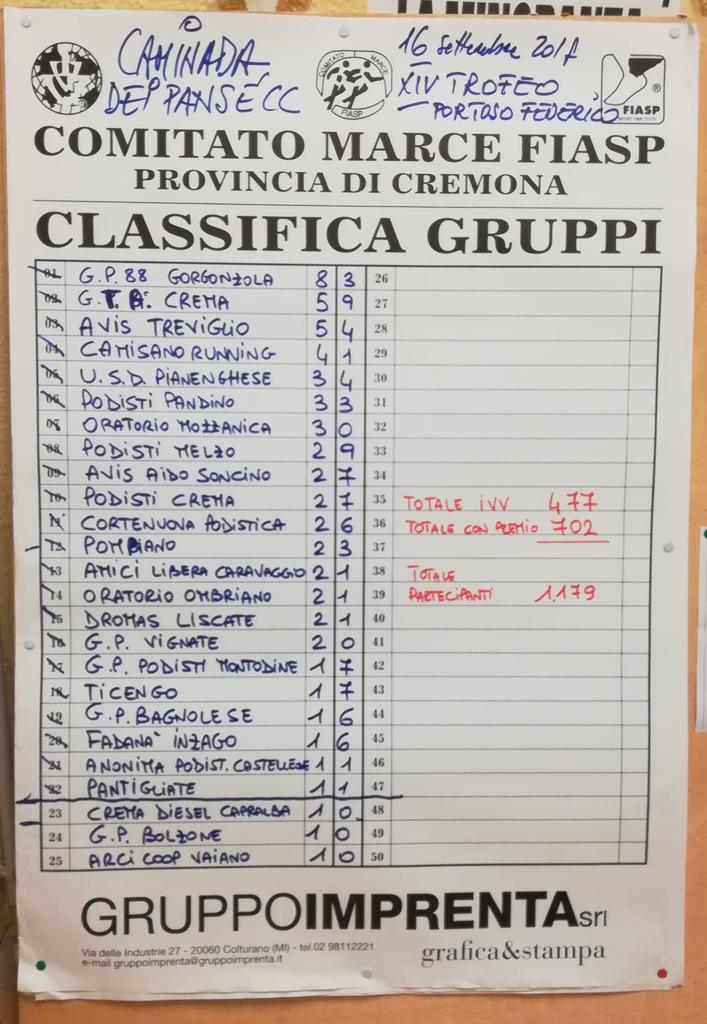 CAMINADA
DEI PANSECC
COMITATO MARCE
FIASP
16 Settembre 2017
XIV TROFEO
PORTASO FEDERICO
FIASP
COMITATO MARCE FIASP
PROVINCIA DI CREMONA
CLASSIFICA GRUPPI
01 G.P. 88 GORGONZOLA 8 3 26
02 G.T.A. CREMA 5 9 27
03 AVIS TREVIGLIO 5 4 28
04 CAMISANO RUNNING 4 1 29
05 U.S.D. PIANENGHESE 3 4 30
06 PODISTI PANDINO 3 3 31
07 ORATORIO MOZZANICA 3 0 32
08 PODISTI MELZO 2 9 33
09 AVIS AIDO SONCINO 2 7 34
10 PODISTI CREMA 2 7 35 TOTALE IVV 477
11 CORTENUOVA PODISTICA 2 6 36 TOTALE CON PREMIO 702
12 POMBIANO 2 3 37
13 AMICI LIBERA CARAVAGGIO 2 1 38 TOTALE
14 ORATORIO OMBRIANO 2 1 39 PARTECIPANTI 1.179
15 DROMAS LISCATE 2 1 40
16 G.P. VIGNATE 2 0 41
17 G.P. PODISTI MONTODINE 1 7 42
18 TICENGO 1 7 43
19 G.P. BAGNOLESE 1 6 44
20 FADANA' INZAGO 1 6 45
21 ANONIMA PODIST. CASTELLESE 1 1 46
22 PANTIGLIATE 1 1 47
23 CREMA DIESEL CAPRALBA 1 0 48
24 G.P. BOLZONE 1 0 49
25 ARCI COOP VAIANO 1 0 50
GRUPPOIMPRENTA srl
Via delle Industrie 27 - 20060 Colturano (MI) - tel.02 98112221
e-mail gruppoimprenta@gruppoimprenta.it
grafica&stampa